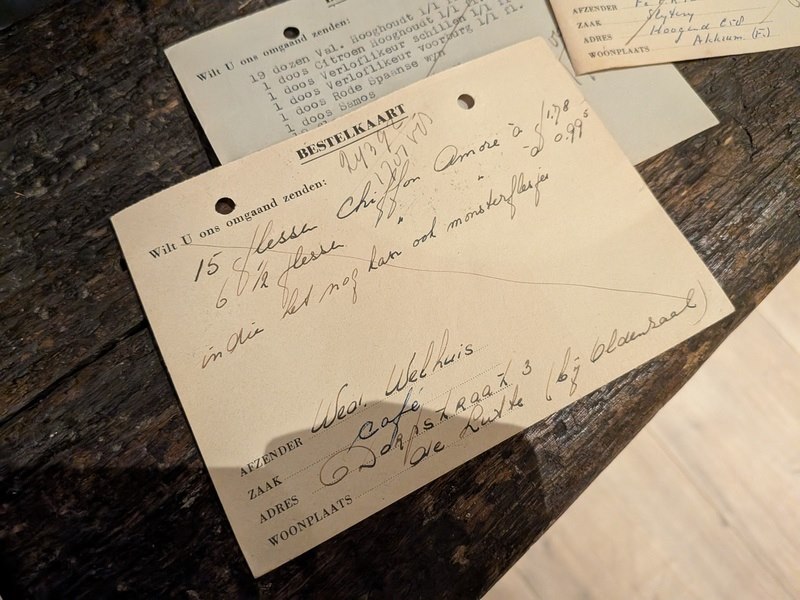 Wilt U ons omgaand zenden:
19 dozen Val. Hooghoudt 1/1 fl.
1 doos Citroen Hooghoudt 1/1 fl.
1 doos Verloflikeur schillen 1/1 fl.
1 doos Verloflikeur voorburg 1/1 fl.
1 doos Rode Spaanse wyn
1 doos Samos
AFZENDER
ZAAK Slyterij
ADRES Hoogend
WOONPLAATS Akkrum. (F.)
BESTELKAART
Wilt U ons omgaand zenden:
15 flessen Chiffon Amore à ƒ 1.78
6 1/2 flessen " " à 0.99⁵
indien het nog kan ook monsterflesjes
AFZENDER Wed. Welhuis
ZAAK Café
ADRES Dorpstraat 3
WOONPLAATS de Lutte (bij Oldenzaal)